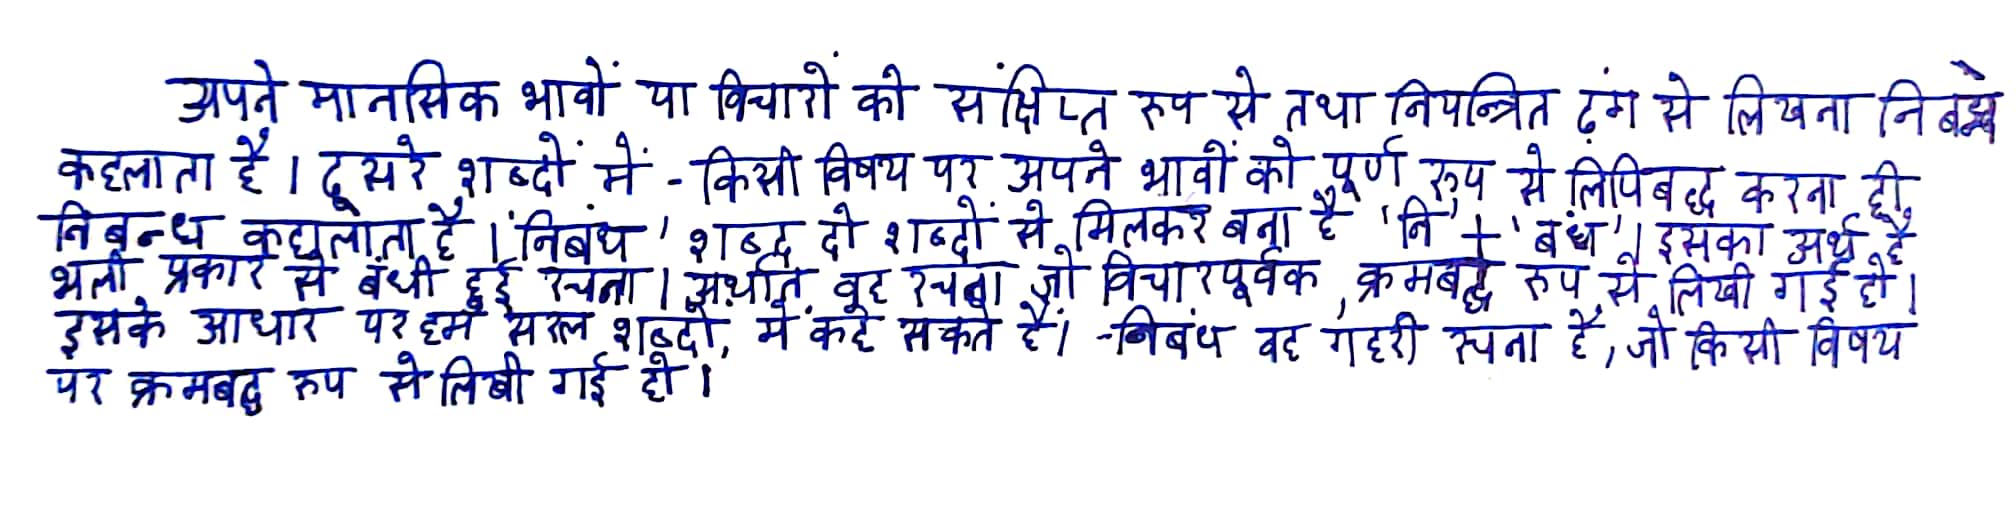 अपने मानसिक भावों या विचारों को संक्षिप्त रूप से तथा नियन्त्रित ढंग से लिखना
कहलाता है। दूसरे शब्दों में - किसी विषय पर अपने भावों को पूर्ण रूप से लिपिबद्ध करना ही
निबन्ध कहलाता है। 'निबंध' शब्द दो शब्दों से मिलकर बना है 'नि' + 'बंध'। इसका अर्थ है
भली प्रकार से बंधी हुई रचना। अर्थात वह रचना जो विचारपूर्वक, क्रमबद्ध रूप से लिखी गई हो।
इसके आधार पर हम सरल शब्दों, में कह सकते हैं। -निबंध वह गहरी रचना है, जो किसी विषय
पर क्रमबद्ध रूप से लिखी गई हो।